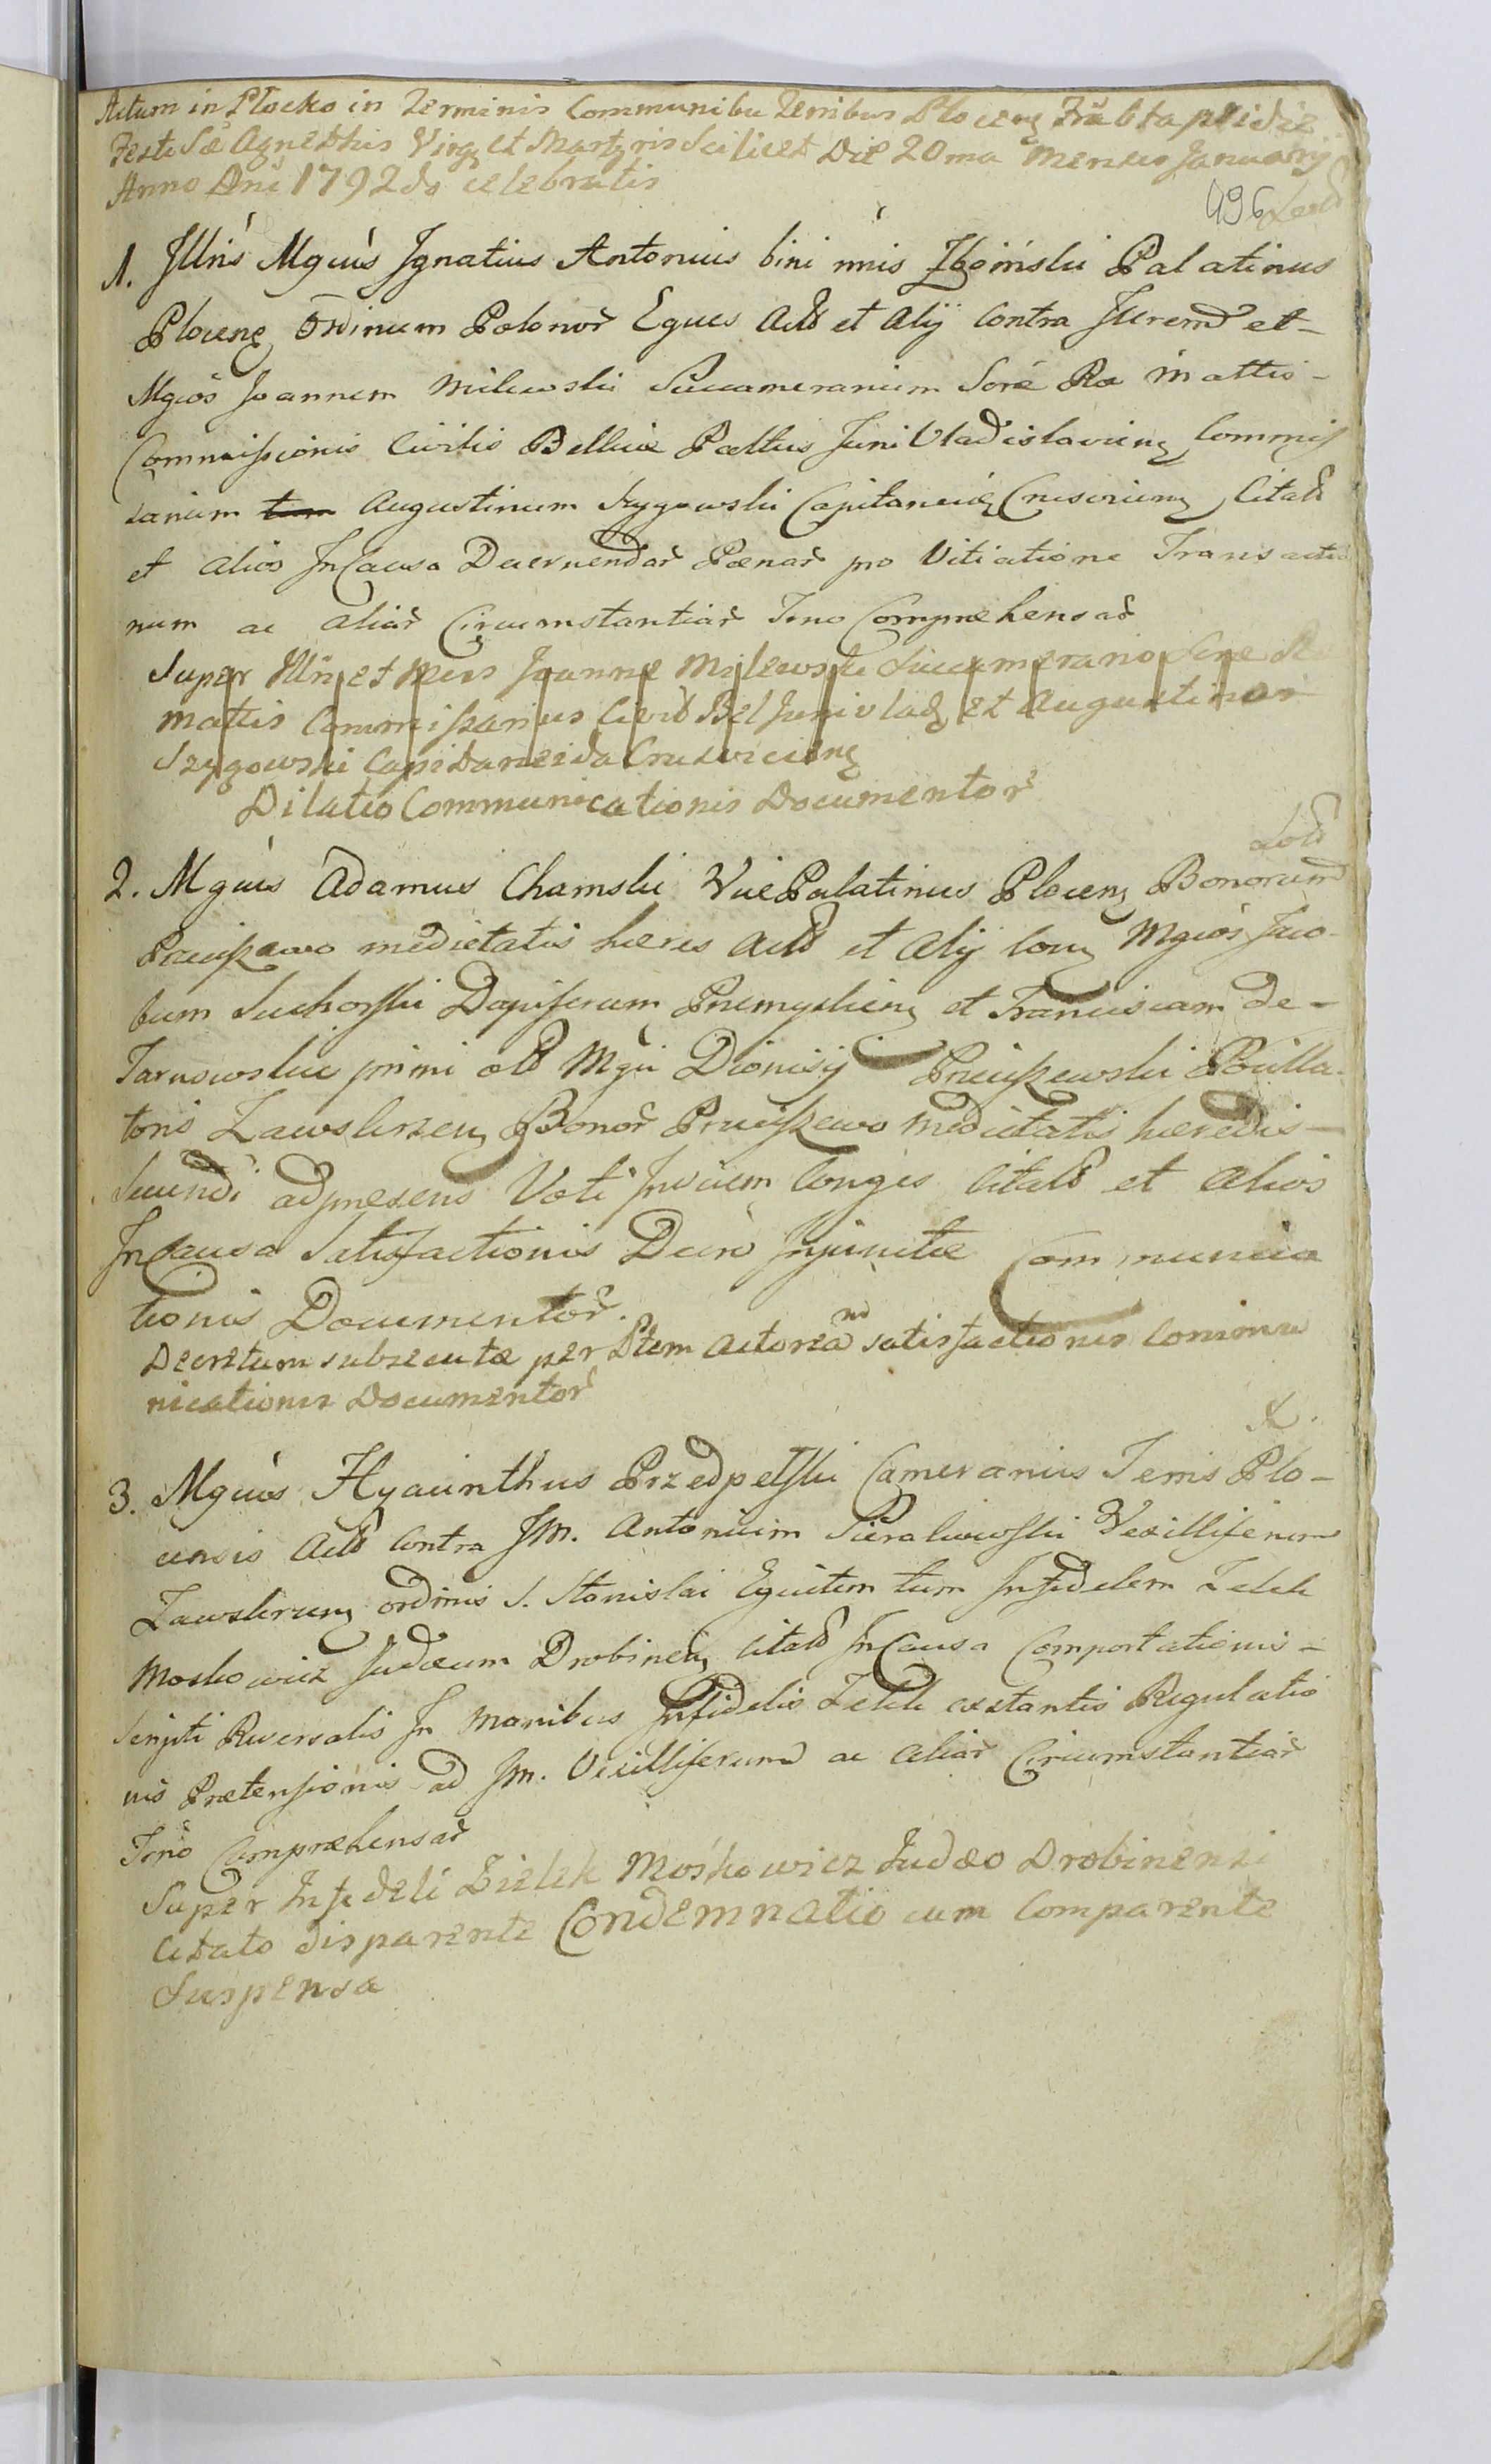 Actum in Płocko in Terminis Communibu Terribus Plocenȝ Fria 6ta pridie
Festi Sae Agnethis Virgȝ et Martyris Scilicet Die 20ma Mensis January
Anno Dni 1792do celebratis
496
1. Jllris Mgcus Jgnatius Antonius bini nnis Zboinski Palatinus
Plocenȝ Ordinum Polonor Eques Actor et Alij Contra Jllrem et
Mgcos Joannem Milewski Succamerarium Sore Rae Mattis
Commissionis Civilis Bellicae Pallus Juni Vladislavienȝ Commis
sarium tum Augustinum Szygowski Capitaneidȝ Crusviciens Citatos
et alios Jn Causa Decernendar Poenar pro Vitiatione Transactio
num ac aliar Circumstantiar Tno Comprehensar
Super Jllri et Mcis Joanne Milewski Succamerario Sere Re
mattis Commissarius Civil Bel Junivladȝ et Augustinos
Szygowski Capitaneida Crusviciens
Dilatio Communicationis Documentor
2. Mgcus Adamus Chamski Vice Palatinus Plocenȝ Bonorum
Pruiszewo medietatis haeres Actor et Alij Conȝ Mgcos Jaco
bum Suchorski Dapiferum Premyslienȝ et Franciscam de
Tarnowskie primi olo Mgci Dionisij Pruiszewski Pocilla
toris Zawskrzenȝ Bonor Pruiszewo medietatis haeredis
Secundi adpraesens Voti Jnvicem Conges Citatos et Alios
Jn Causa Satisfactionis Decro Jnjunctae Communica
tionis Documentor.
Decretum subsecutae per Ptem Actorea no satisfactionis Commu
nicationis Documentor
3. Mgcus Hyacinthus Przedpełski Camerarius Terris Plo
censis Actor Contra Jm. Antonium Sierakowski Vexilliferum
Zawskrzenȝ ordinis S. Stanislai Equitem tum Jnfidelem Zelek
Moskowicz Judaeum Drobinenȝ Citatos Jn Causa Comportationis
Scripti Reversalis Jn Manibus Jnfidelis Zelek extantis Regulatio
nis Praetensionis ad Jm. Vexilliferum ac aliar Circumstantiar
Tno Compraehensar
Super Infideli Zielek Moskowicz Judaeo Drobinensi
Citato disparente Condemnatio cum Comparente
Suspensa